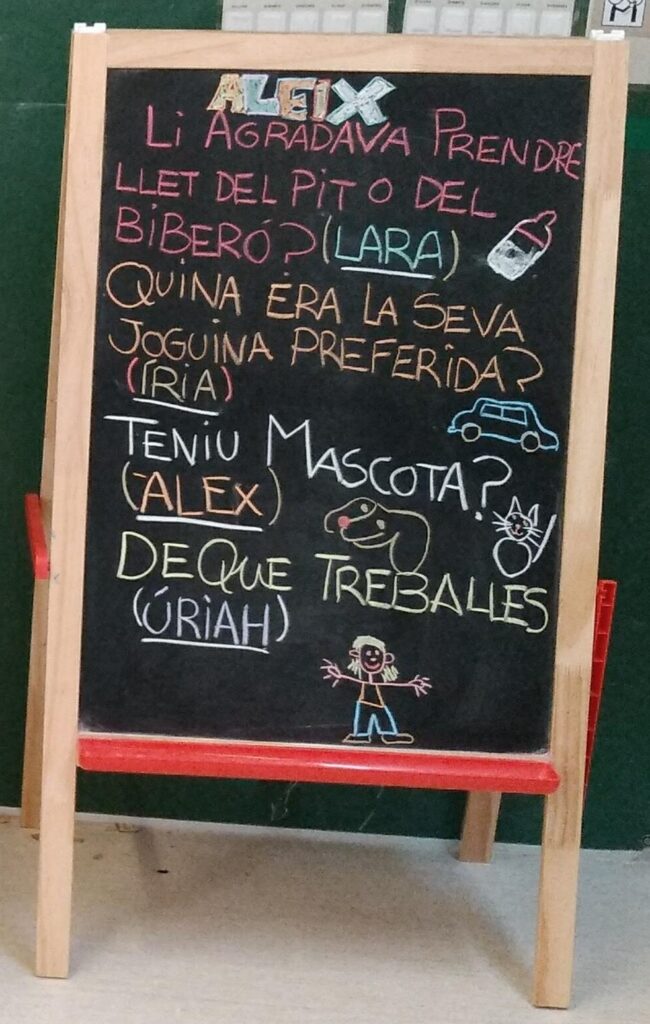 ALEIX
Li AGRADAVA PRENDRE
LLET DEL PiT O DEL
BiBERÓ? (LARA)
QUiNA ERA LA SEVA
JOGUINA PREFERIDA?
(ÍRiA)
TENiU MASCOTA?
(ALEX)
DE QUE TREBALLES
(ÚRiAH)